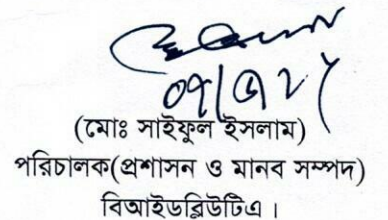 (মোঃ সাইফুল ইসলাম)
পরিচালক(প্রশাসন ও মানব সম্পদ)
বিআইডব্লিউটিএ।